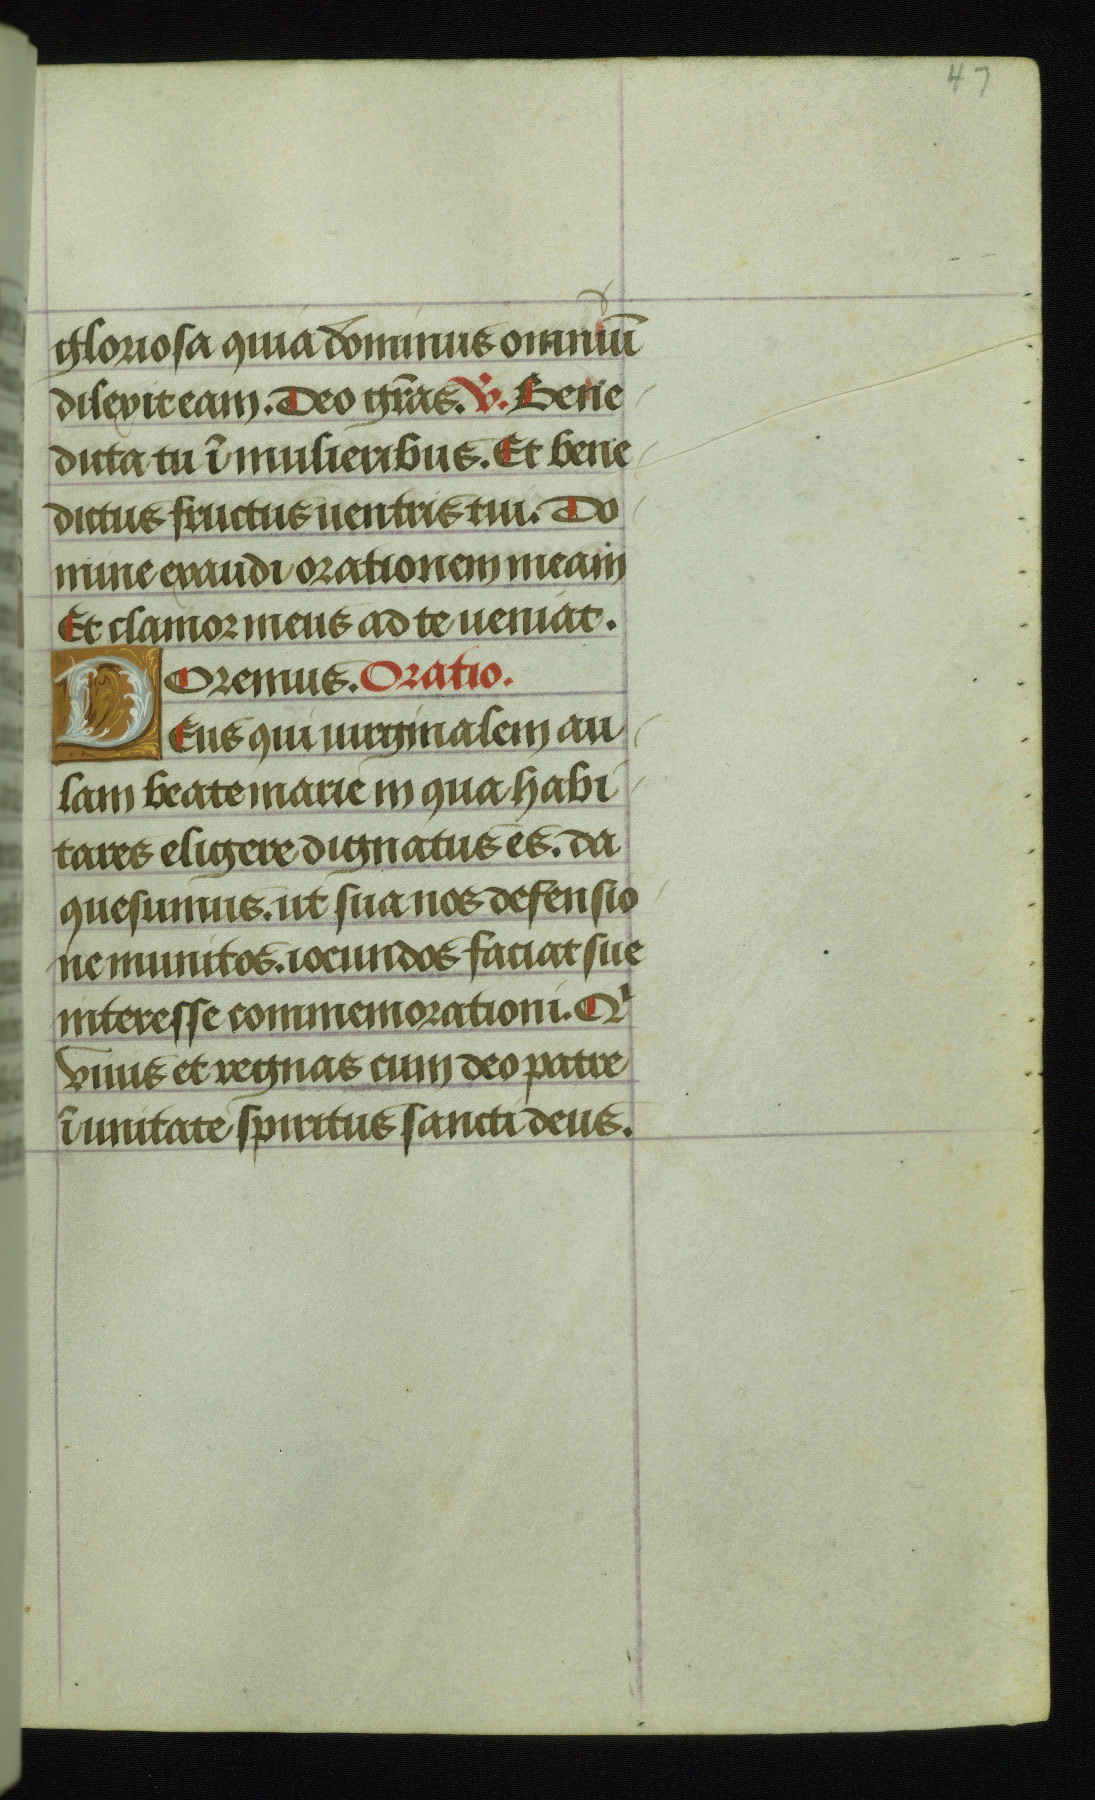 47
gloriosa quia dominus omniū
dilexit eam. Deo gr̄as. V̄. Bene
dicta tu ī mulieribus. Et bene
dictus fructus uentris tui. Do
mine exaudi orationem meam
Et clamor meus ad te ueniat.
Oremus. Oratio.
DEus qui uirginalem au
lam beate marie in qua habi
tares eligere dignatus es. da
quesumus. ut sua nos defensio
ne munitos. iocundos faciat sue
interesse commemorationi. Qͥ
viuis et regnas cum deo patre
ī unitate spiritus sancti deus.